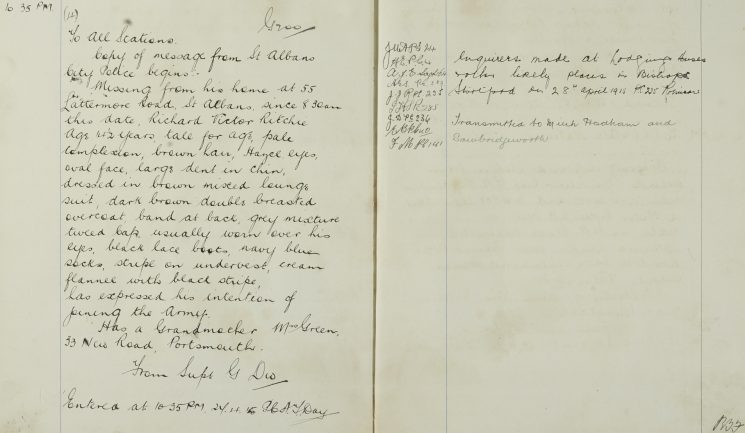 10 35 P.M.
(12)
To All Stations.
Copy of message from St Albans
City Police begins:-
Missing from his home at 55
Lattermore Road, St Albans, since 8 30am
this date, Richard Victor Ritchie
Age 14½ years, tale for age, pale
complexion, brown hair, Hazel eyes,
oval face, large dent in chin,
dressed in brown mixed lounge
suit, dark brown double breasted
overcoat, band at back, grey mixture
tweed cap, usually worn over his
eyes, black lace boots, navy blue
socks, stripe on undervest, cream
flannel with black stripe,
has expressed his intention of
joining the Army.
Has a Grandmother Mrs Green,
33 New Road, Portsmouth.
From Supt G Div
Entered at 10 35 PM. 24.4.15 Day
Enquirers made at Lodging Houses
likely places in Bishops
Stortford on 28th april 1915
Transmitted to Much Hadham and
Sawbridgeworth